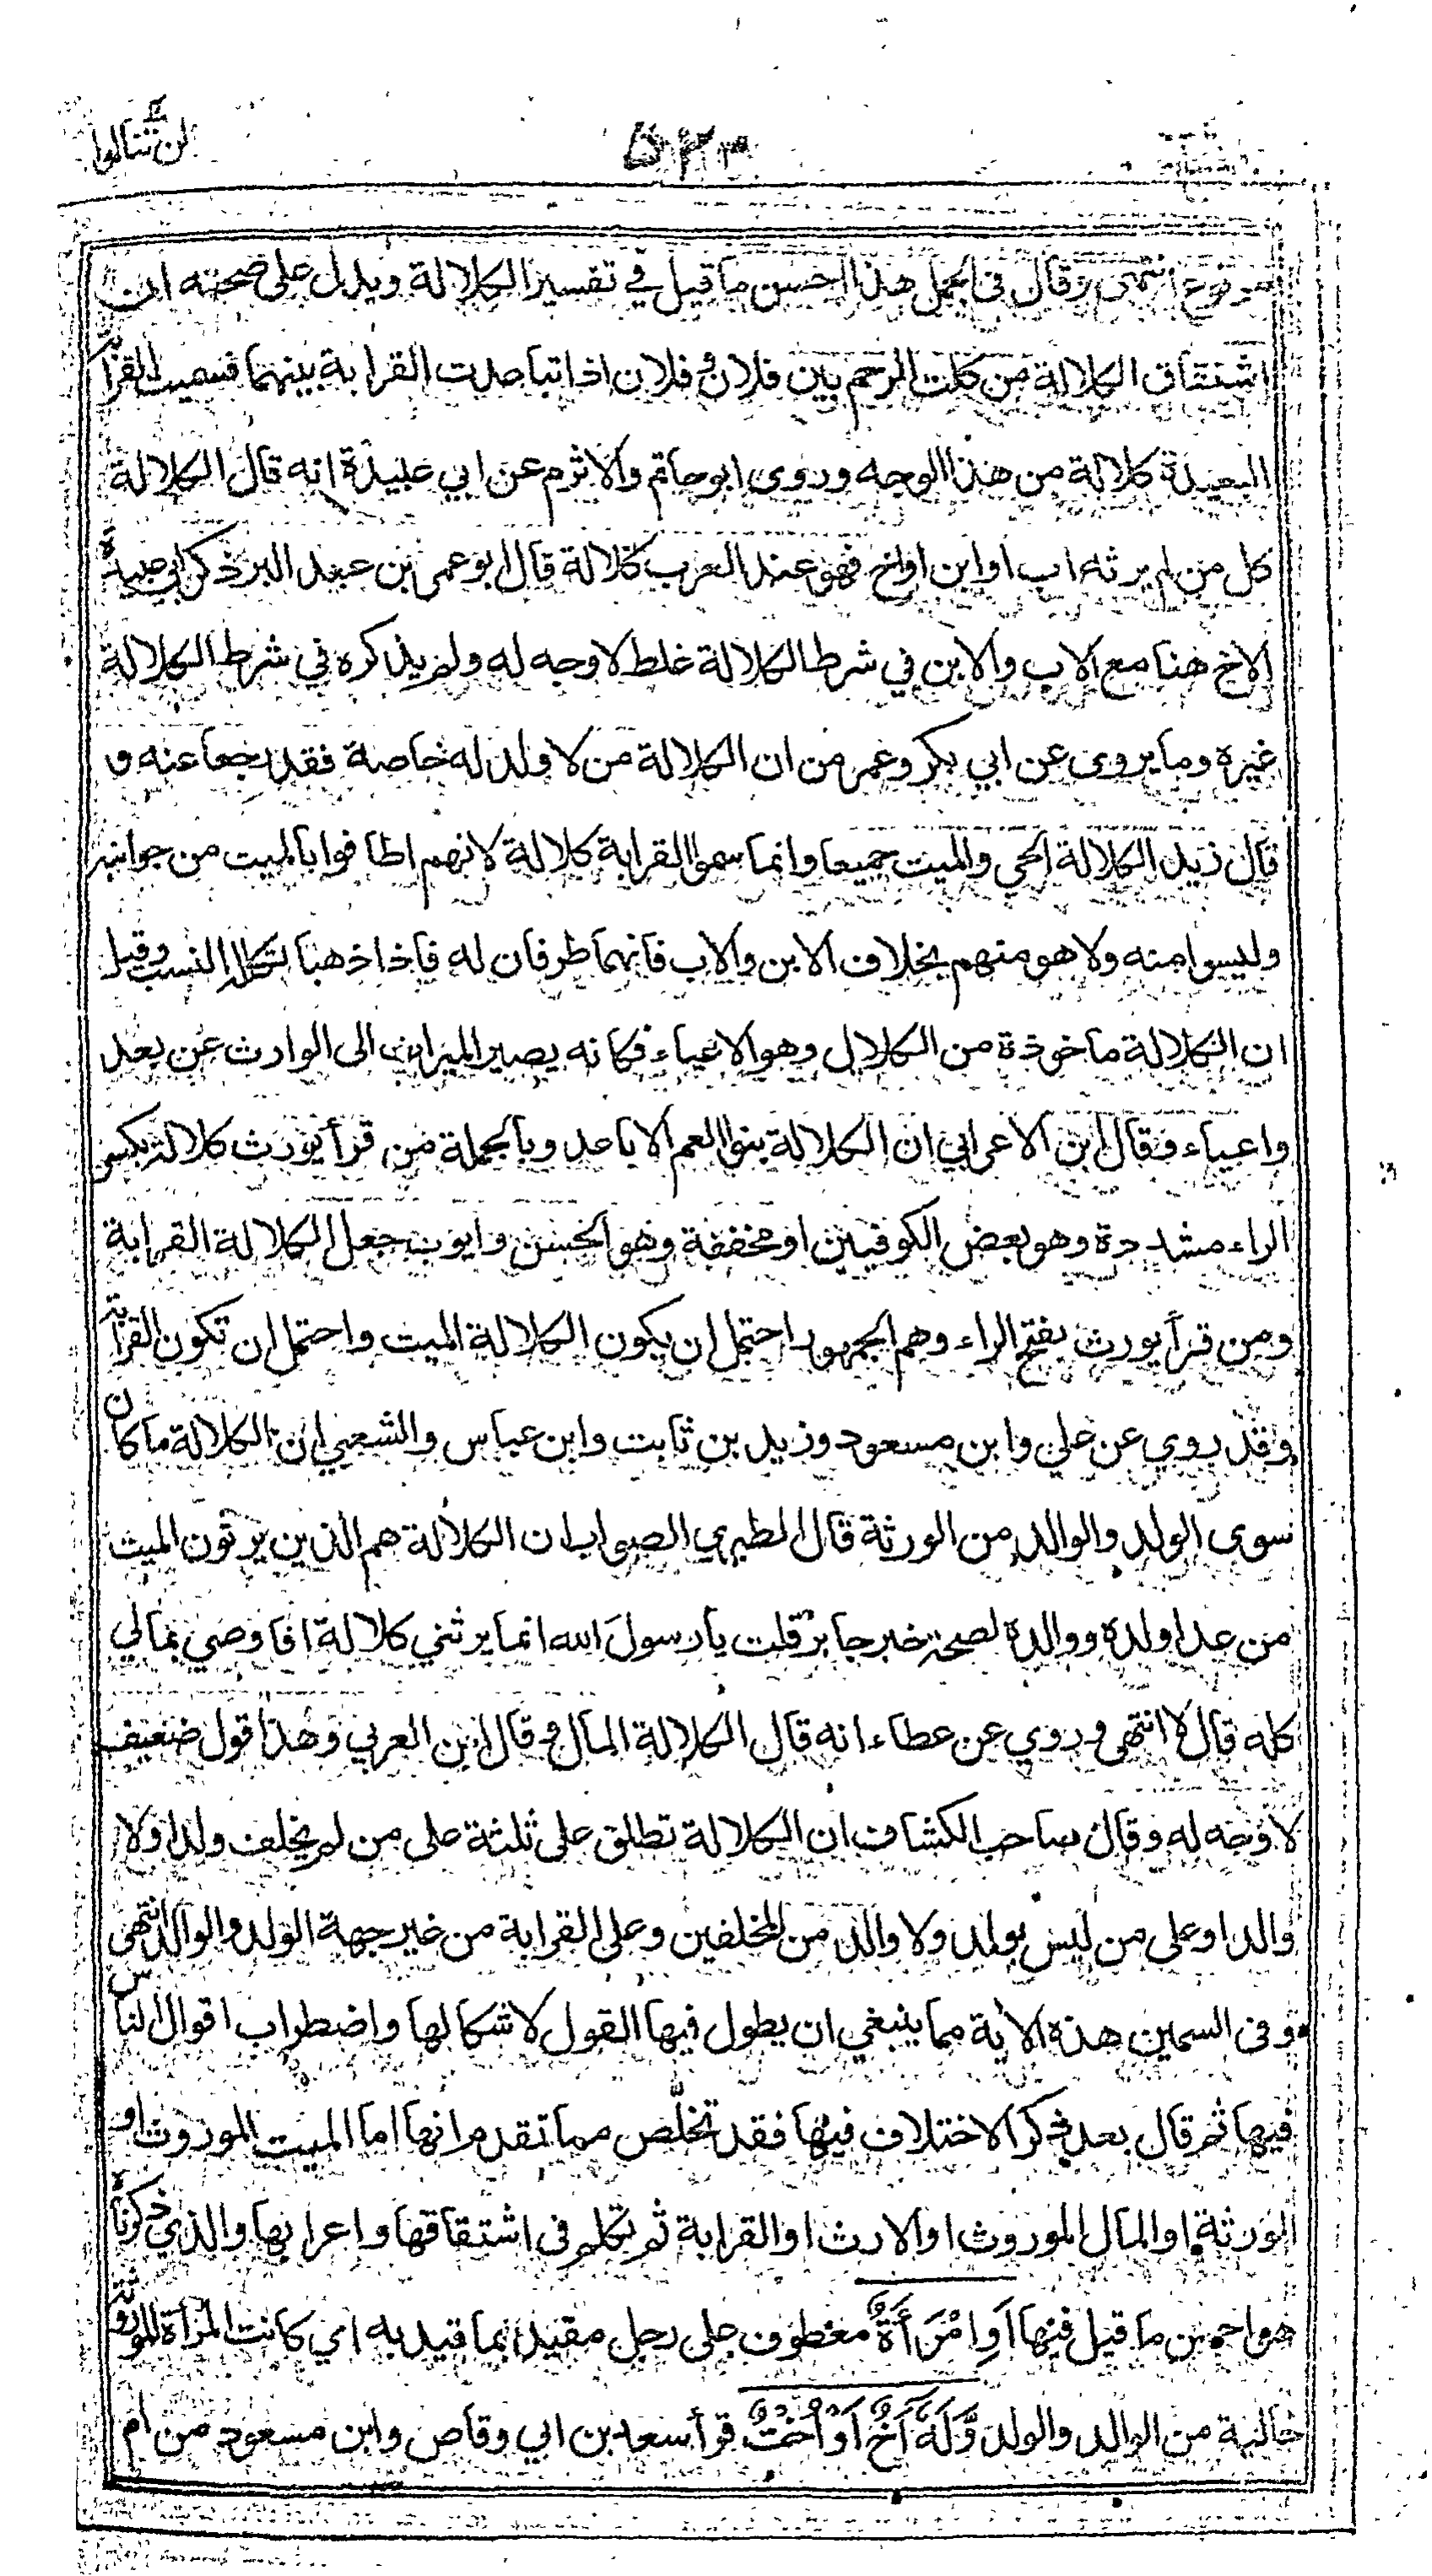 لن تنالوا
٥٢٣
وقال في الجمل هذا احسن ما قيل في تفسير الكلالة ويدل على صحته ان
اشتقاق الكلالة من كلت الرحم بين فلان وفلان اذا تباعدت القرابة بينهما فسميت القرابة
البعيدة كلالة من هذا الوجه وروى ابو حاتم والاثرم عن ابي عبيدة انه قال الكلالة
كل من لم يرثه اب او ابن او اخ فهو عند العرب كلالة قال ابو عمر بن عبد البر ذكر ابي عبيدة
الاخ هنا مع الاب والابن في شرط الكلالة غلط لا وجه له ولم يذكره في شرط الكلالة
غيره وما يروى عن ابي بكر وعمر من ان الكلالة من لا ولد له خاصة فقد رجعا عنه و
قال زيد الكلالة الحي والميت جميعا وانما سموا القرابة كلالة لانهم اطافوا بالميت من جوانبه
وليسوا منه ولا هو منهم بخلاف الابن والاب فانهما طرفان له فاذا ذهبا تكلله النسب وقيل
ان الكلالة ماخوذة من الكلال وهو الاعياء فكانه يصير الميراث الى الوارث عن بعد
واعياء وقال ابن الاعرابي ان الكلالة بنوا العم الاباعد وبالجملة من قرأ يورث كلالة بكسر
الراء مشددة وهو بعض الكوفيين او مخففة وهو الحسن وايوب جعل الكلالة القرابة
ومن قرأ يورث بفتح الراء وهم الجمهور احتمل ان يكون الكلالة الميت واحتمل ان تكون القرابة
وقد روي عن علي وابن مسعود وزيد بن ثابت وابن عباس والشعبي ان الكلالة ما كان
سوى الولد والوالد من الورثة قال الطبري الصواب ان الكلالة هم الذين يرثون الميت
من عدا ولده ووالده لصحة خبر جابر قلت يا رسول الله انما يرثني كلالة افاوصي بمالي
كله قال لا انتهى وروي عن عطاء انه قال الكلالة المال وقال ابن العربي وهذا قول ضعيف
لا وجه له وقال صاحب الكشاف ان الكلالة تطلق على ثلثة على من لم يخلف ولدا ولا
والدا وعلى من ليس بولد ولا والد من المخلفين وعلى القرابة من غير جهة الولد والوالد انتهى
وفى السمين هذه الاية مما ينبغي ان يطول فيها القول لاشكالها واضطراب اقوال الناس
فيها ثم قال بعد ذكر الاختلاف فيها فقد تخلّص مما تقدم انها اما الميت الموروث او
الورثة او المال الموروث او الارث او القرابة ثم تكلم فى اشتقاقها واعرابها والذي ذكرناه
هو احسن ما قيل فيها اَوِ امْرَأَةٌ معطوف على رجل مقيد بما قيد به اي كانت المرأة الموروثة
خالية من الوالد والولد وَّلَهٗ اَخٌ اَوْ اُخْتٌ قرأ سعد بن ابي وقاص وابن مسعود من ام